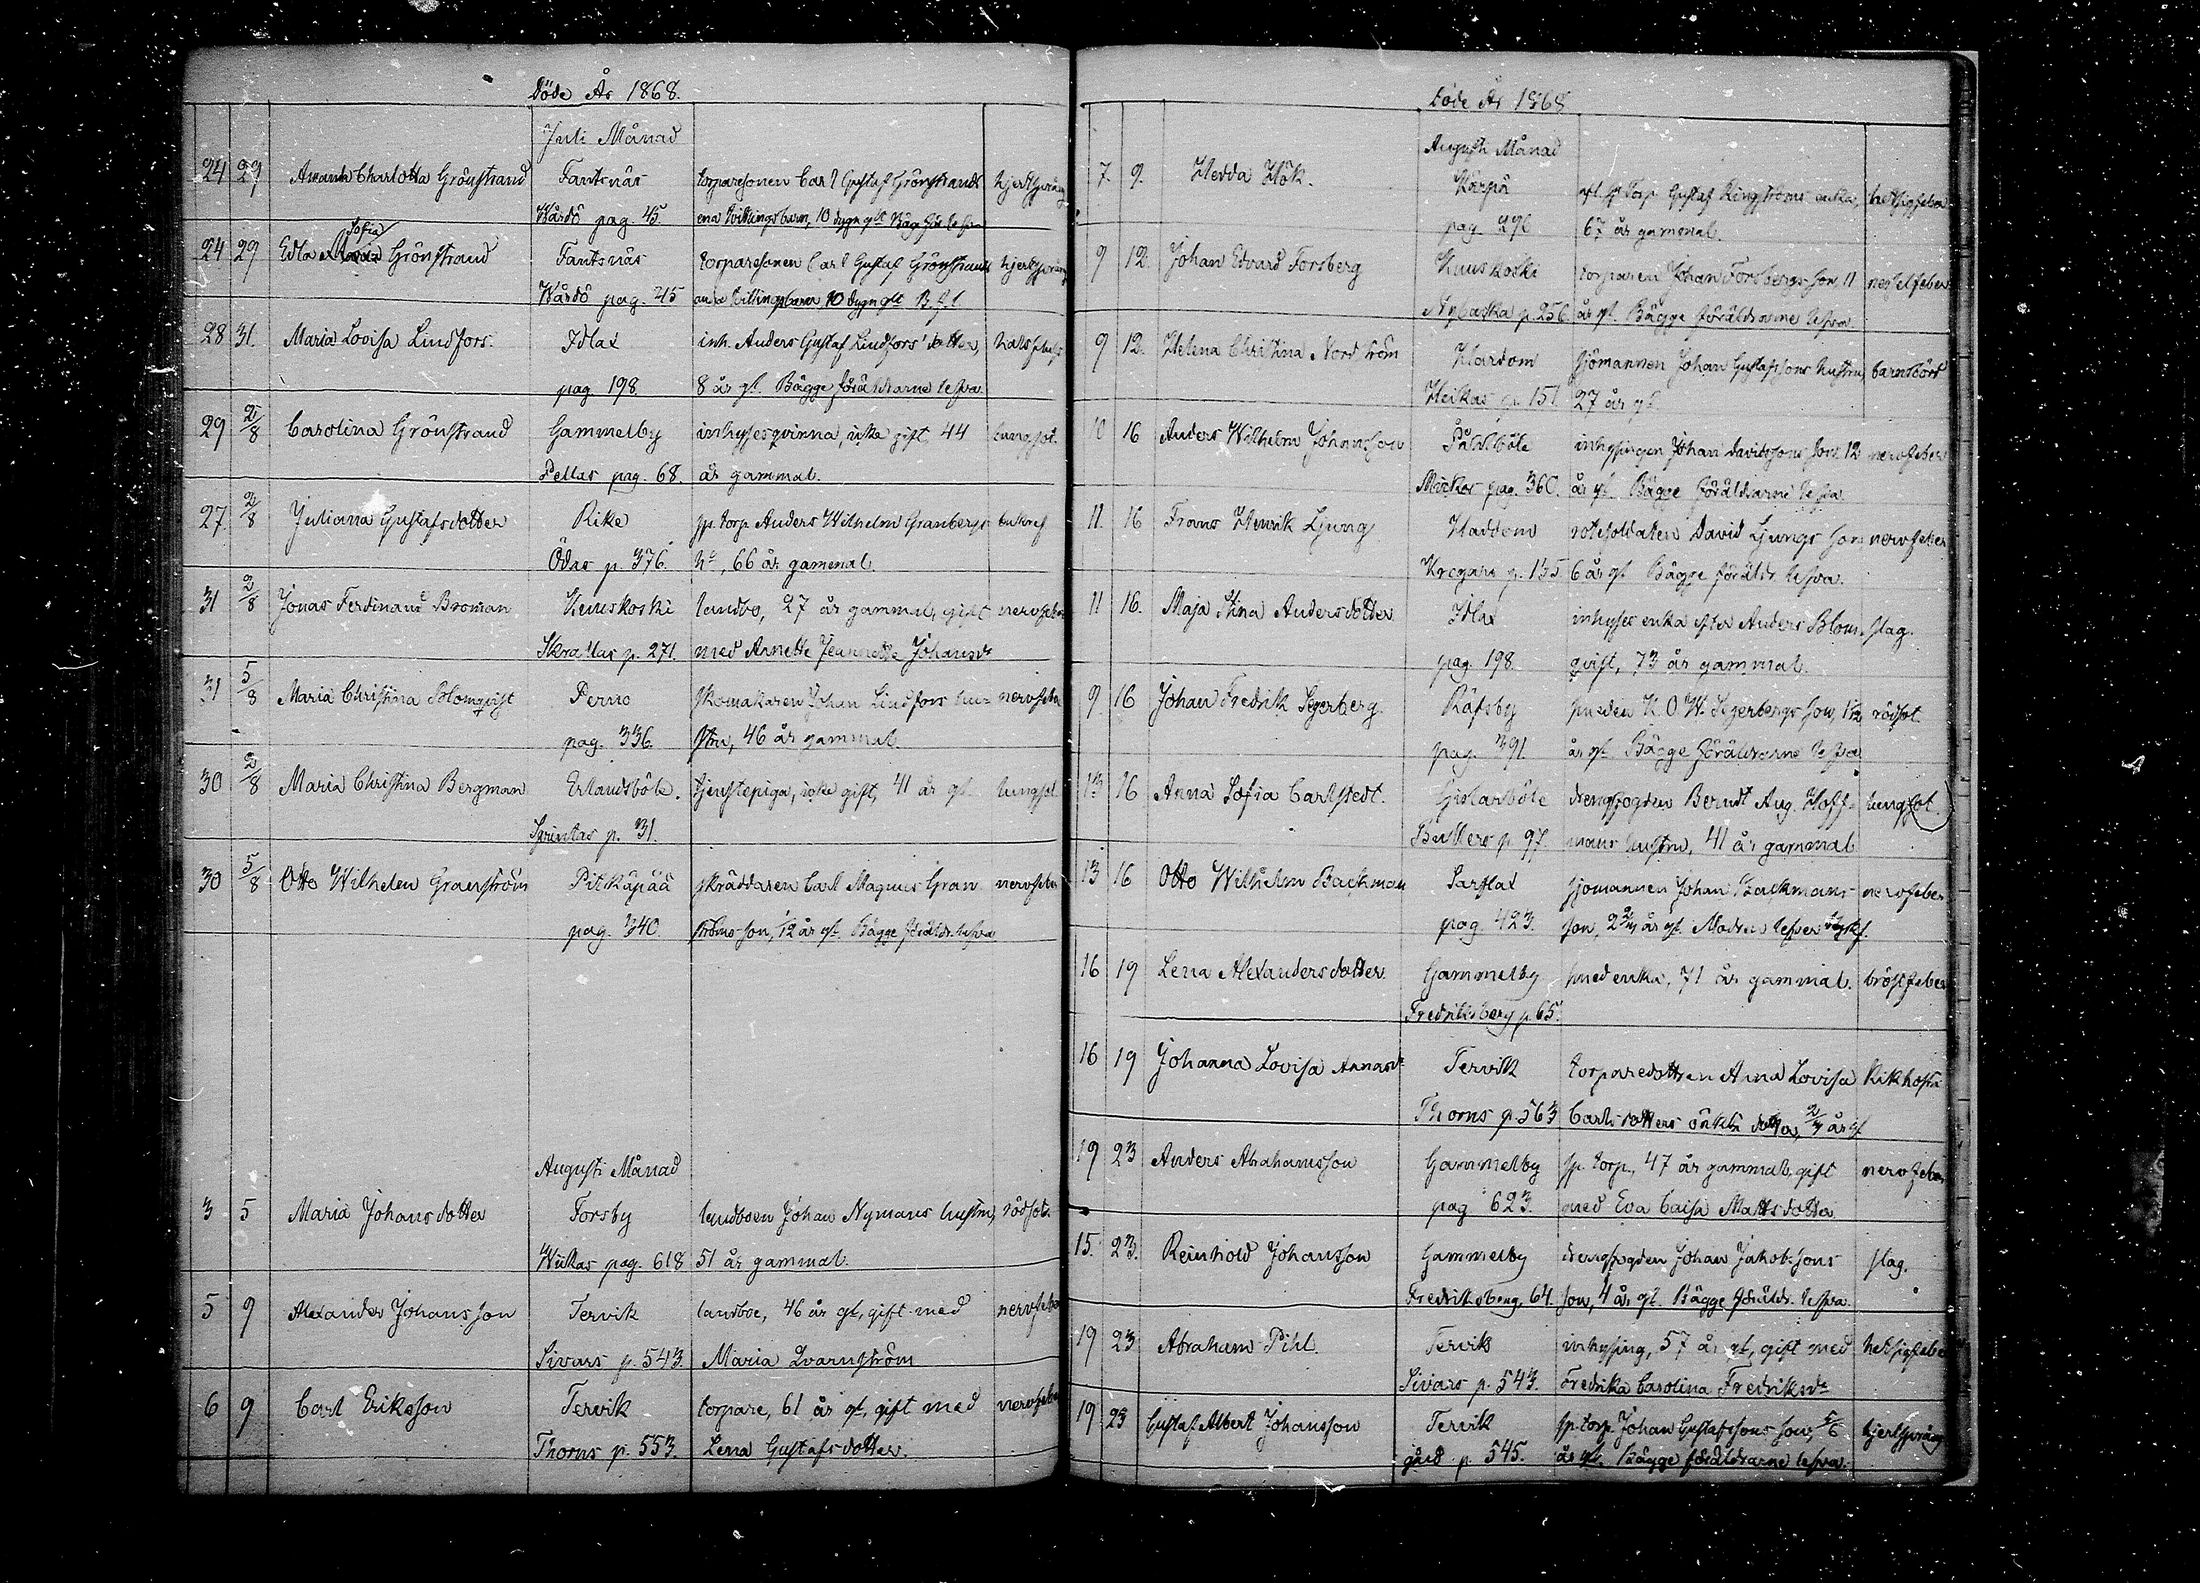 Döde År 1868.
Juli Månad
24 29 Amanda Charlotta Grönstrand Fantsnäs torparesonen Carl Gustaf Grönstrands hjertsprång
Wårdö pag. 45. ena tvillingsbarn, 10 dygn glt Bäge för. lefva
Sofia
24 29 Edla Maria Grönstrand Fantsnäs torparesonen Carl Gustaf Grönstrands hjertsprång
Wårdö pag. 45 andra tvillingsbarn, 10 dygn glt B. f. l
28 31. Maria Lovisa Lindfors. Idlax inh. Anders Gustaf Lindfors' dotter,
pag. 198. 8 år gl. Bägge föräldrarne lefva.
29 2/8 Carolina Grönstrand Gammelby inhysesqvinna, icke gift, 44 lungsot.
Pellas pag. 68 år gammal.
27 2/8 Juliana Gustafsdotter Rike sp. torp. Anders Wilhelm Granbergs
Ödas p. 376. hu, 66 år gammal
31 2/8 Jonas Ferdinand Broman Kuuskoski landbo, 27 år gammal, gift nervfeber
Skrallas p. 271. med Annette Jeannette Johansdr
31 5/8 Maria Christina Blomqvist Perno skomakaren Johan Lindfors hu= nervfeber
pag. 336. stru, 46 år gammal.
30 2/8 Maria Christina Bergman Erlandsböle. tjenstepiga, icke gift, 41 år gl lungsot
p. 31.
30 5/8 Otto Wilhelm Granström Pitkäpää skräddaren Carl Magnus Gran nervfeber
pag. 340. ströms son, 12 år gl. Bägge föräldr. lefva
Augusti Månad
3 5 Maria Johansdotter Forsby landboen Johan Nymans hustru, rödsot.
Wiikas pag. 618 51 år gammal.
5 9 Alexander Johansson Tervik landboe, 46 år gl, gift med nervfeber
Sivars p. 543. Maria Qvarnström
6 9 Carl Eriksson Tervik torpare, 61 år gl, gift med nervfeber
Thorns p. 553. Lena Gustafsdotter.
Döde År 1868
Augusti Månad
7. 9. Hedda Hök. Kärpä afl. sp torp Gustaf Ringströms enka, hetsigfeber
pag. 296 67 år gammal.
9 12. Johan Edvard Forsberg Kuuskoski torparen Johan Forsbergs son, 11 nervfeber
Nybacka p. 256 år gl. Bägge föräldrarne lefva
9 12. Helena Christina Nordström Hardom sjömannen Johan Gustafssons hustru, barnsbörd
Heikas p. 151. 27 år gl
10 16 Anders Wilhelm Johansson Påhlsböle inhysingen Johan Davidssons son, 12 nervfeber
Mickos pag. 360. år gl. Bägge föräldrarne lefva
11. 16 Frans Henrik Ljung Haddom rotesoldaten David Ljungs son nervfeber
Kregars p. 135 6 år gl Bägge föräldr. lefva.
11 16. Maja Stina Andersdotter Idlax inhyses enka efter Anders Blom= slag.
pag. 198. qvist, 73 år gammal.
9 16 Johan Fredrik Segerberg Räfsby smeden K. O W. Segerbergs son, 1½ rödsot.
pag. 391. år gl. Bägge föräldrarne lefva
13 16 Anna Sofia Carlstedt. Gislarböle drengfogden Berndt Aug. Hoff= lungsot.
Bullers p 97. mans hustru, 41 år gammal
13 16 Otto Wilhelm Backman Sarflax sjömannen Johan Backmans nervfeber
pag. 423. son, år gl. Modren lefver
16 19 Lena Alexandersdotter Gammelby smedenka, 71 år gammal. bröstfeber
Fredriksberg p. 65.
16 19 Johanna Lovisa Annasdr Tervik torparedottren Anna Lovisa kikhosta
Thorns p. 563 Carlsdotters oäkta dotter, år gl
19 23 Anders Abrahamsson Gammelby sp. torp., 47 år gammal, gift nervfeber
pag 623. med Eva Caisa Mattsdotter
15. 23. Reinhold Johansson Gammelby drengfogden Johan Jakobssons slag.
Fredriksberg, 64. son, 4 år gl. Bägge föräldr. lefva.
19 23 Abraham Pihl. Tervik inhysing, 57 år gl, gift med hetsigfeber
Sivars p. 543. Fredrika Carolina Fredriksdr
19 23 Gustaf Albert Johansson Tervik sp. torp. Johan Gustafssons son, 5/6 hjertsprång
gård p. 545. år gl. Bägge föräldrarne lefva.